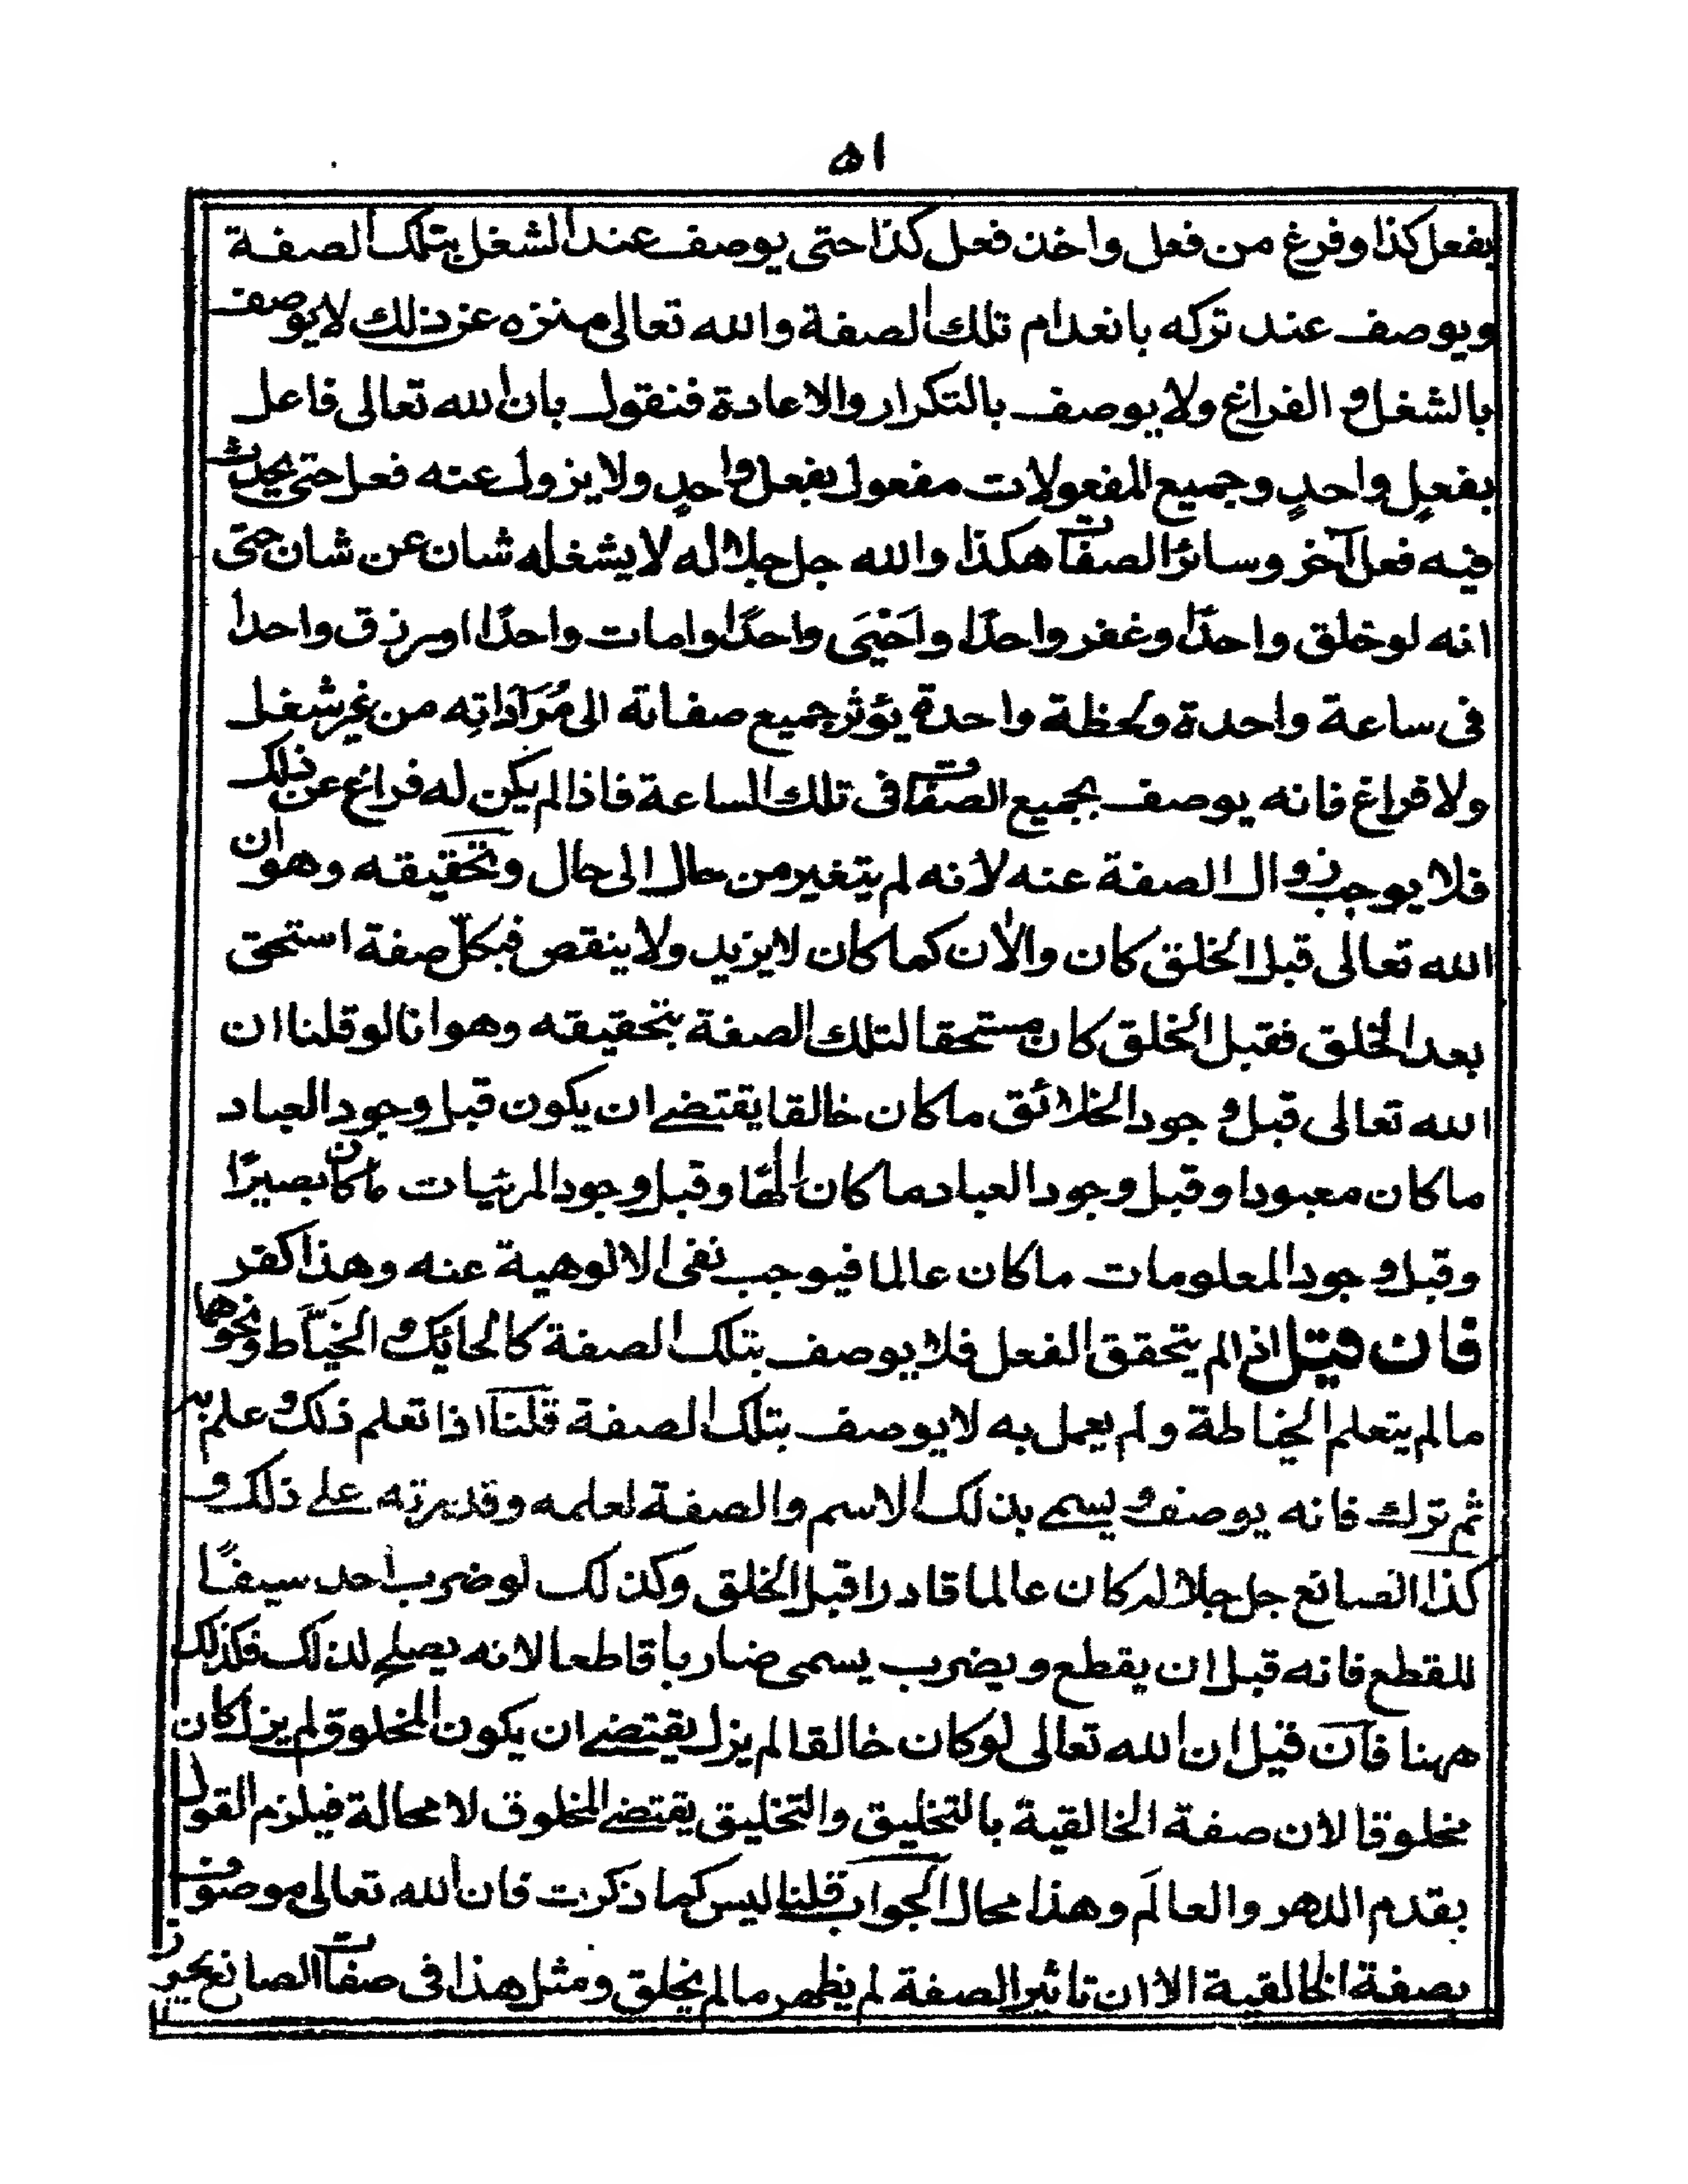 ٥١
بفعل كذا وفرغ من فعل واخذ فعل كذا حتى يوصف عند الشغل بتلك الصفة
ويوصف عند تركه بانعدام تلك الصفة والله تعالى منزه عن ذلك لا يوصف
بالشغل والفراغ ولا يوصف بالتكرار والاعادة فنقول بان الله تعالى فاعل
بفعلٍ واحدٍ وجميع المفعولات مفعول بفعل واحدٍ ولا يزول عنه فعل حتى يحدث
فيه فعل آخر وسائر الصفات هكذا والله جل جلاله لا يشغله شان عن شان حتى
انه لو خلق واحدًا وغفر واحدًا واَحْيَى واحدًا وامات واحدًا او رزق واحدا
فى ساعة واحدة ولحظة واحدة يؤثر جميع صفاته الى مُرَادَاتِه من غير شغل
ولا فراغ فانه يوصف بجميع الصفات فى تلك الساعة فاذا لم يكن له فراغ عن ذلك
فلا يوجب زوال الصفة عنه لانه لم يتغير من حال الى حال وتحقيقه وهو ان
الله تعالى قبل الخلق كان والاٰن كما كان لا يزيد ولا ينقص فبكلّ صفة استحق
بعد الخلق فقبل الخلق كان مستحقا لتلك الصفة بتحقيقه وهو انا لو قلنا ان
الله تعالى قبل وجود الخلائق ما كان خالقا يقتضے ان يكون قبل وجود العباد
ما كان معبودا وقبل وجود العباد ما كان الٰهًا وقبل وجود المرئيات ما كان بصيرًا
وقبل وجود المعلومات ما كان عالما فيوجب نفى الالوهية عنه وهذا كفر
فان قيل اذا لم يتحقق الفعل فلا يوصف بتلك الصفة كالحائك والخيّاط ونحوها
ما لم يتعلم الخياطة ولم يعمل به لا يوصف بتلك الصفة قلنا اذا تعلم ذلك وعلم به
ثم ترك فانه يوصف ويسمے بذلك الاسم والصفة لعلمه وقدرته علے ذلك و
كذا الصانع جل جلاله كان عالما قادرا قبل الخلق وكذلك لو ضرب احد سيفًا
للقطع فانه قبل ان يقطع ويضرب يسمى ضاربا قاطعا لانه يصلح لذلك فكذلك
ههنا فان قيل ان الله تعالى لو كان خالقا لم يزل يقتضے ان يكون المخلوق لم يزل كان
مخلوقا لان صفة الخالقية بالتخليق والتخليق يقتضے المخلوق لا محالة فيلزم القول
بقدم الدهر والعالَم وهذا محال الجواب قلنا ليس كما ذكرت فان الله تعالى موصوف
بصفة الخالقية الا ان تاثير الصفة لم يظهر ما لم يخلق ومثل هذا فى صفات الصانع يجوز